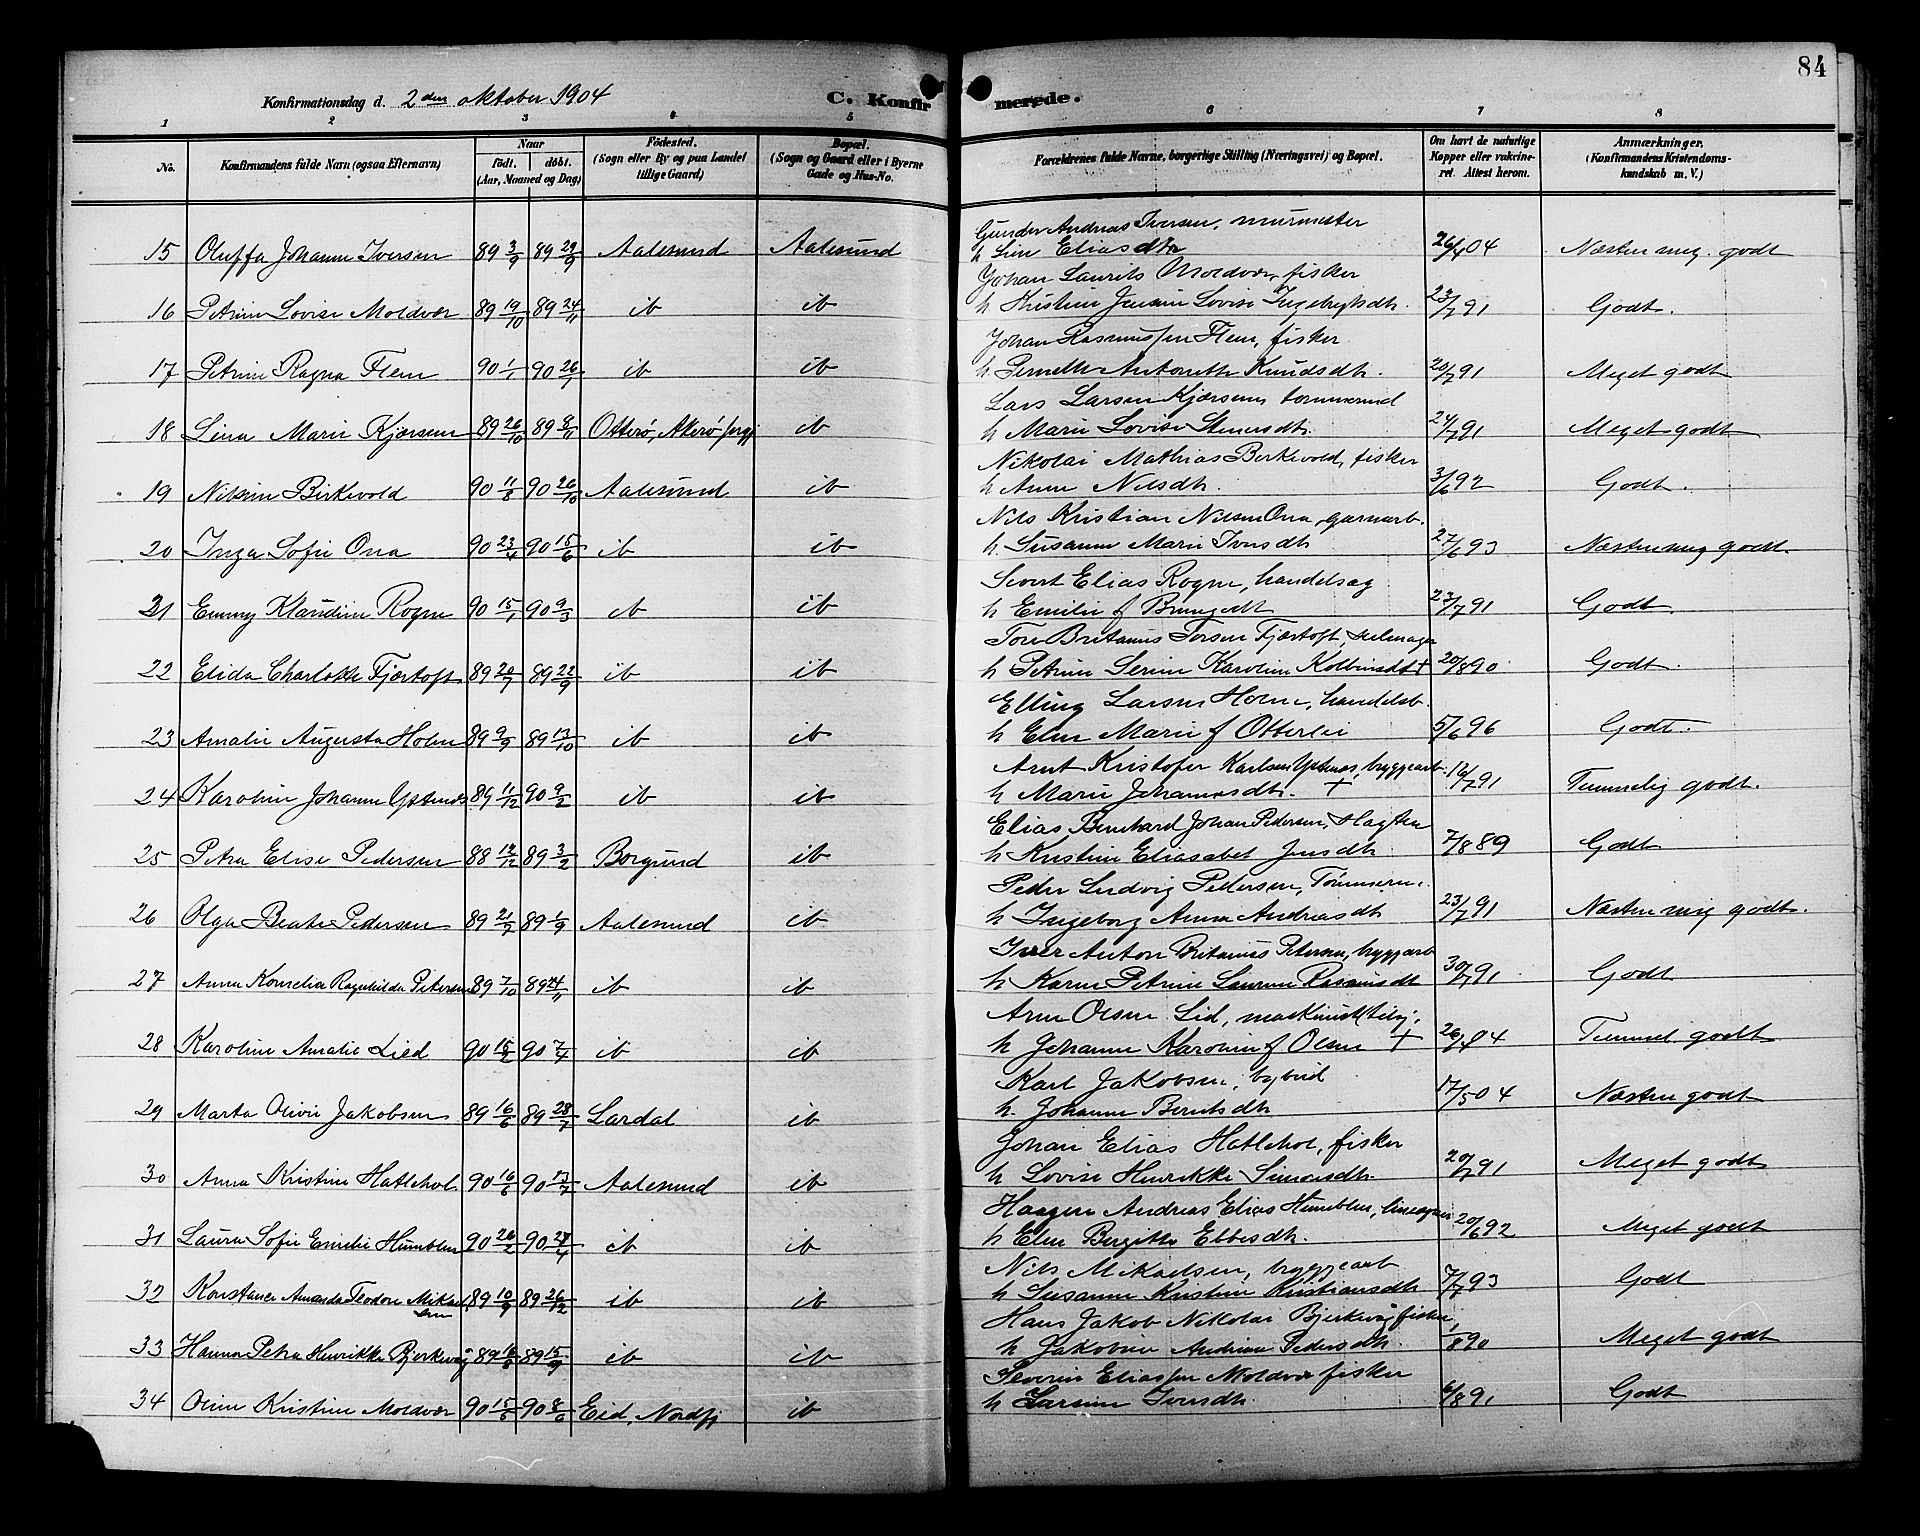 84
Konfirmationsdag d. 2den oktober 1904 C. Konfirmerede.
1 2 3 4 5 6 7 8
No. Konfirmandens fulde Navn (ogsaa Efternavn) Naar født. døbt. (Aar, Maaned og Dag) Fødested. (Sogn eller By og paa Landet tillige Gaard) Bopæl. (Sogn og Gaard eller i Byerne Gade og Hus-No. Forældrenes fulde Navne, borgerlige Stilling (Næringsvei) og Bopæl. Om havt de naturlige Kopper eller vakcineret. Attest herom. Anmærkninger. (Konfirmandens Kristendomskundskab m. V.)
Gunder Andreas Iversen, murmester
15 Oluffa Johanne Iversen 89 3/9 89 29/9 Aalesund Aalesund h Eliasdtr 26/4 04 Næsten meg. godt
Johan Laurits Moldvær, fisker
16 Petrine Lovise Moldvær 89 19/10 89 24/11 ib ib h Kristine Jensine Lovise Ingebrigtsdtr. 23/7 91 Godt.
Johan Rasmussen Flem, fisker
17 Petrine Ragna Flem 90 1/1 90 26/1 ib ib h Pernelle Antonette Knudsdtr. 20/7 91 Meget godt
Lars Larsen Kjørsem, tømmermd
18 Lina Marie Kjørsem 89 26/10 89 8/11 Otterø, Akerø prgj ib h Marie Lovise Steinersdtr. 24/7 91 Meget godt
Nikolai Mathias Birkevold, fisker
19 Nilsine Birkevold 90 11/8 90 26/10 Aalesund ib h Anne Nilsdtr. 3/6 92 Godt.
Nils Kristian Nilsen Ona, garnarb.
20 Inga Sofie Ona 90 23/4 90 15/6 ib ib h Susanne Marie Iversdtr 27/6 93 Næsten meg godt.
Sivert Elias Rogne, handelsag
21 Emmy Klaudine Rogne 90 15/1 90 9/3 ib ib h Emilie f 23/7 91 Godt.
Tore Britanus Torsen Fjærtoft, seilmager
22 Elida Charlotte Fjærtoft 89 20/7 89 22/9 ib ib h Petrine Serine Karoline Kolbeinsdtr + 20/8 90 Godt.
Elling Larsen Holm, handelsb.
23 Amalie Augusta Holm 89 9/9 89 13/10 ib ib h Eline Marie f Otterlei 5/6 96 Godt.
Arnt Kristofer Karlsen Ystenes, bryggearb.
24 Karoline Johanne Ystenes 89 11/12 90 9/2 ib ib h Marie Johannesdtr. + 16/7 91 Temmelig godt.
Elias Bernhard Johan Pedersen,
25 Petra Elise Pedersen 88 12/12 89 3/2 Borgund ib h Kristine Eliasabet Jensdtr. 7/8 89 Godt
Peder Ludvig Pedersen, Tømmerm.
26 Olga Beate Pedersen 89 21/7 89 1/9 Aalesund ib h Ingeborg Anna Andreasdtr 23/7 91 Næsten meg godt.
Iver Anton Britanus Petersen, bryggearb
27 Anna Kornelia Ragnhilda Petersen 89 7/10 89 24/11 ib ib h Karen Petrine Laurine Rasmusdt 30/7 91 Godt
Arne Olsen Lid,
28 Karoline Amalie Lied 90 15/2 90 7/4 ib ib h Johanne Karoline f Olsen + 26/4 04 Temmel. godt
Karl Jakobsen, bybud
29 Marta Olivie Jakobsen 89 16/6 89 28/7 Lardal ib h. Johanne Berntsdtr 17/5 04 Næsten godt
Johan Elias Hatlehol, fisker
30 Anna Kristine Hatlehol. 90 16/6 90 13/7 Aalesund ib h Lovise Henrikke Simonsdtr. 20/7 91 Meget godt
Haagen Andreas Elias Humblen,
31 Laura Sofie Emelie Humblen 90 26/2 90 27/4 ib ib h Eline Birgitte Ebbesdtr. 20/6 92 Meget godt
Nils Mikaelsen, bryggearb
32 Konstance Amanda Teodore Mikaelsen 89 10/9 89 26/12 ib ib h Susanne Kristine Kristiansdtr 7/7 93 Godt
Hans Jakob Nikolai Bjerkevåg fisker,
33 Hanna Petra Henrikke Bjerkevåg 89 16/8 89 15/9 ib ib h Jakobine Andrine Pedersdtr. 1/8 90 Meget godt
Severin Eliassen Moldvær fisker
34 Oline Kristine Moldvær 90 15/5 90 8/6 Eid, Nordfj ib h Larsine Iversdtr. 6/8 91 Godt